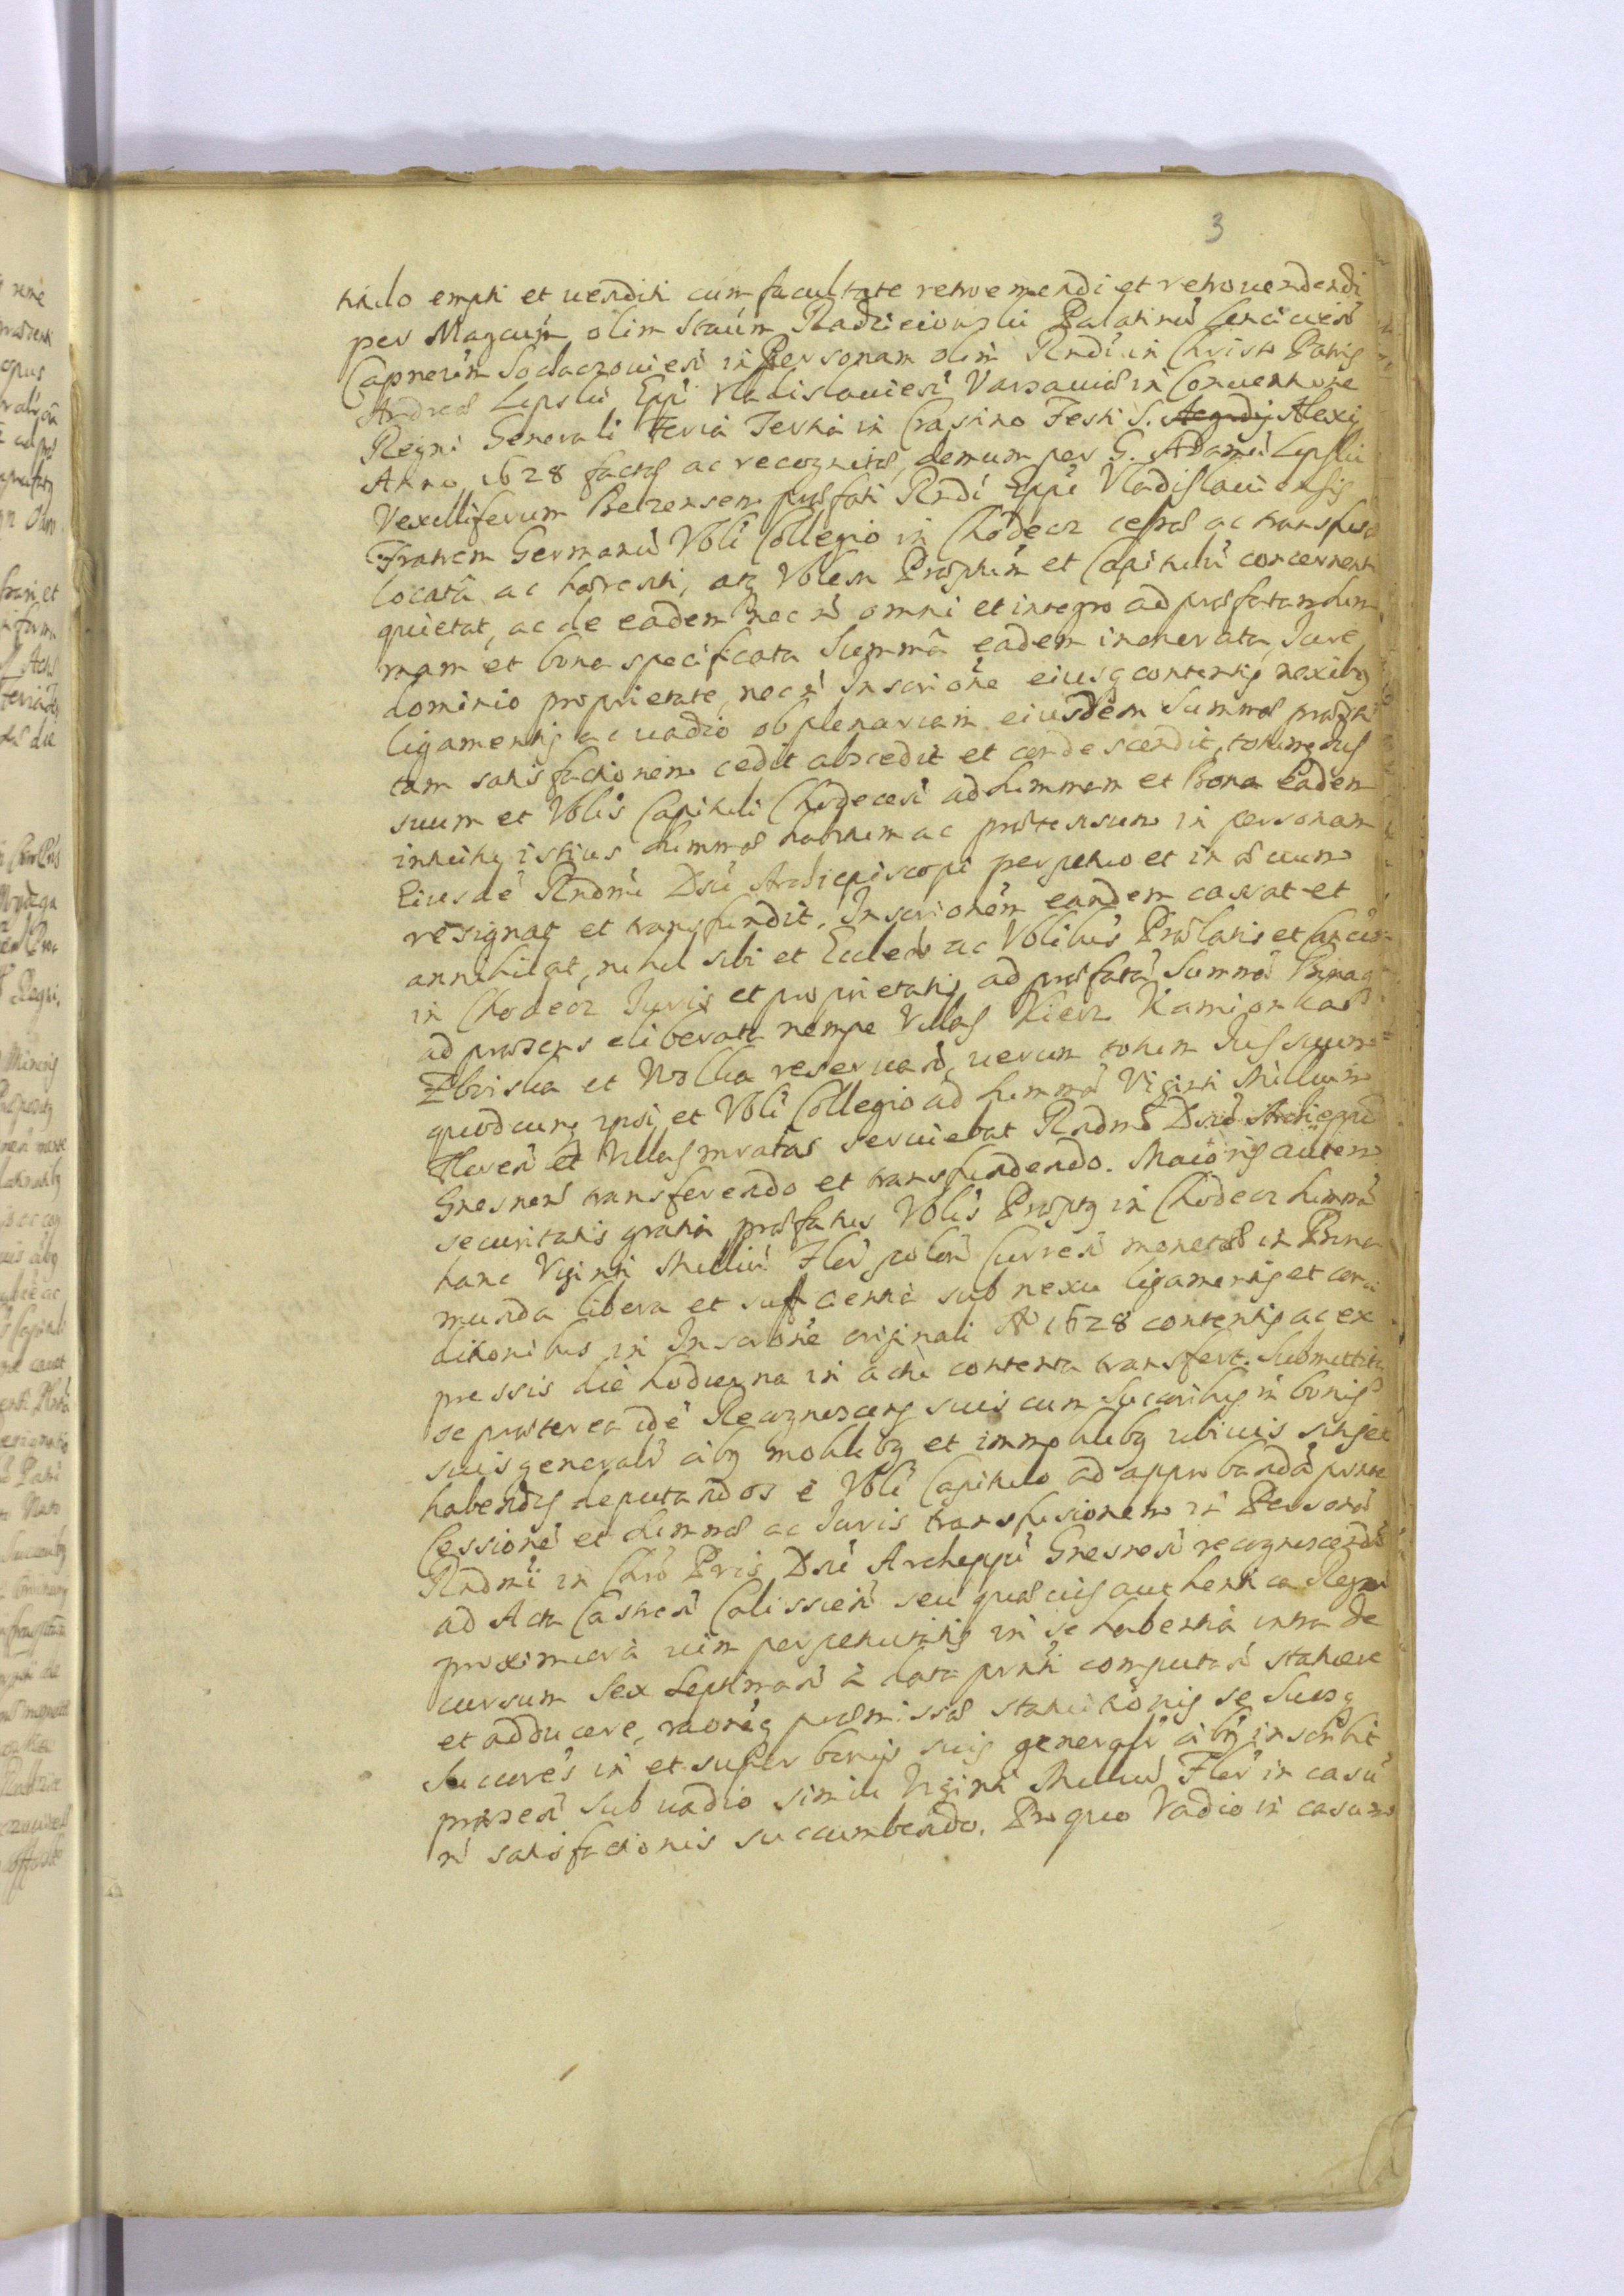 3
tulo empti et uenditi cum facultate retroemendi et retrouendendi
per Magcum olim Stanm Radzieiouski Palatinu Lencicien
Capneum Sochaczouien in Personam olim Rndi in Christo Patris
Andreæ Lipski Eppi Vladislauien Varsauiæ in Conuentione
Regni Generali Feria Tertia in Crastino Festi S. Aegidij Alexij
Anno 1628 factæ ac recognitæ, demum per G. Adamu Lipski
Vexilliferum Belzensem præfati Rndi Eppi Vladislauiensis
Fratrem Germanu Vbli Collegio in Chodecz cessæ ac transfusæ
locata ac hærenti, atq Vblem Præptum et Capitulu concernenti
quietat, ac de eadem nec n omni et integro ad præfatam Sum
mam et bona specificata Summa eadem inonerata Jure
dominio proprietate, nec n Inscrione eiusq contentis nexibq
ligamentis ac uadio ob plenariam eiusdem Summæ præfa
tam satisfactionem cedit abscedit et condescendit, totumq Jus
suum et Vblis Capituli Chodecen ad Summam et Bona eadem
intuitu istius Summæ habitum ac prætensum in personam
Eiusde Rndmi Dni Archiepiscopi perpetuo et in æuum
resignat et transfundit. Inscrionem eandem cassat et
annihilat, nihil sibi et Ecclesiæ ac Vblibus Prælatis et Cncis
in Chodecz Juris et proprietatis ad præfata Summa Bonaq
ad præsens eliberata nempe Villas Kierz Kamionka
Zbriska et Wolka reseruan, uerum totum Jus suum
quodcunq ipsi et Vbli Collegio ad Summa Viginti Millium
Floren et Villas inratas seruiebat Rndmo Dno Archieppo
Gnesnen transferendo et transfundendo. Maioris autem
securitatis gratia præfatus Vblis Præptq in Chodecz Summa
hanc Viginti Milliu Flor polon Curren monetæ in Bona
munda libera et sufficientia sub nexu ligamentis et con
ditionibus in Inscrione originali Ao 1628 contentis ac ex
pressis die hodierna in acta contenta transfert. Submittitq
se præterea ide Recognoscens suis cum Succribus in bonis
suis generalr oibq mobilibq et immobilibq ubiuis sitis et
habendis deputandos e Vbli Capitulo ad approbanda pnte
Cessione et Summæ ac Juris transfusionem in Persona
Rndmi in Chro Pris Dni Archieppi Gnesnen recognoscenda
ad Acta Castren Calissien seu quæuis authentica Regni
proximiora uim perpetuitatis in se habentia intra de
cursum Sex Septimar a data pnti computan statuere
et adducere, raoneq præmissæ statuitionis se Suosq
Succores in et super bonis suis generalr oibq inscribit
præsen sub uadio simili Viginti Milliu Flor in casu
n satisfactionis succumbendo. Pro quo Vadio in casum